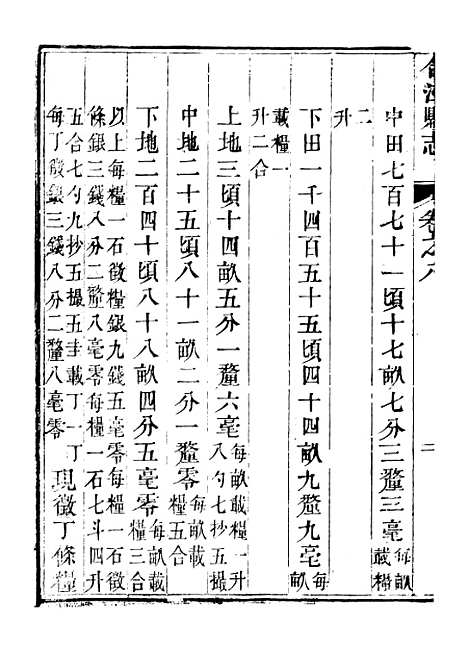 合江縣志 卷之八 二
中田七百七十一頃十七畝七分三釐三毫每畝載糧
二升
下田一千四百五十五頃四十四畝九釐九毫每畝
載糧一升二合
上地三頃十四畝五分一釐六毫每畝載糧一升八勺七抄五撮
中地二十五頃八十一畝二分一釐零每畝載糧五合
下地二百四十頃八十八畝四分五毫零每畝載糧三合
以上每糧一石徵糧銀九錢五毫零每糧一石徵
條銀三錢八分二釐八毫零每糧一石七斗四升
五合七勺九抄五撮五圭載丁一丁
每丁徵銀三錢八分二釐八毫零現徵丁條糧